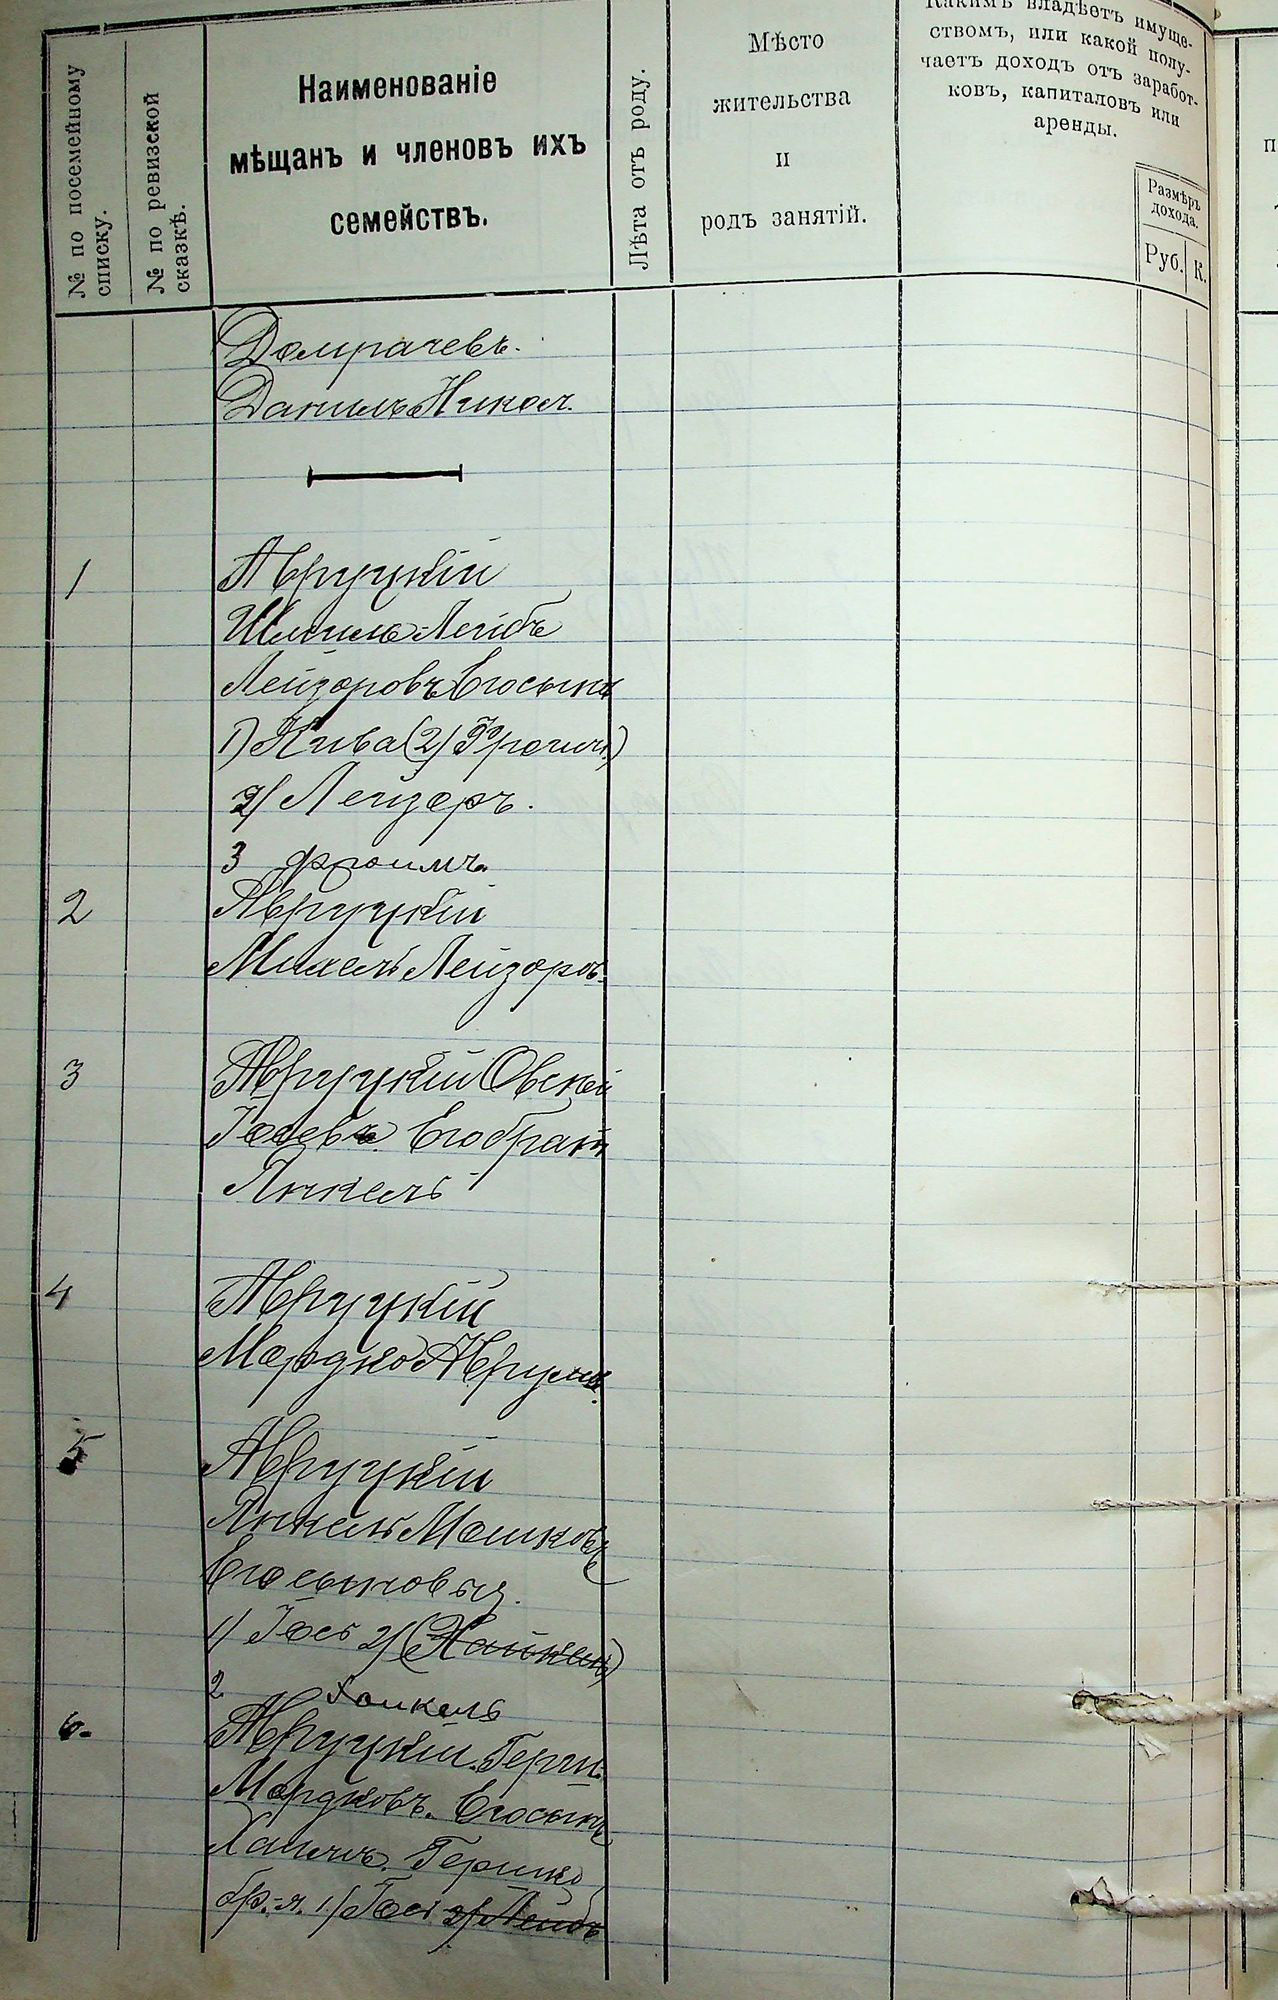 № по посемейному списку.
№ по ревизской сказкѣ.
Наименованіе
мѣщанъ и членовъ ихъ
семействъ.
Лѣта отъ роду.
Мѣсто
жительства
и
родъ занятій.
Какимъ владѣетъ имуще-
ствомъ, или какой полу-
чаетъ доходъ отъ заработ-
ковъ, капиталовъ или
аренды.
Размѣръ
дохода.
Руб. К.
Домрачевъ.
Данилъ Никол.
1 Авруцкій
Шмиль-Лейбъ
Лейзоровъ Его сынъ
1) Кива (2) Фроимъ)
2) Лейзоръ.
3 Фроимъ
2 Авруцкій
Михель Лейзоровъ
3 Авруцкій Овсей
Іосевъ. Его братъ
Янкель
4 Авруцкій
Мордко Аврумов.
5 Авруцкій
Янкель Мошковъ
Его сыновья.
1) Іось 2) (Хайкель)
2 Хаикель
6. Авруцкій. Герш.
Мордковъ. Его сынъ
Хаимъ. Гершко
бр.-я. 1) Іось 2) Лейбъ